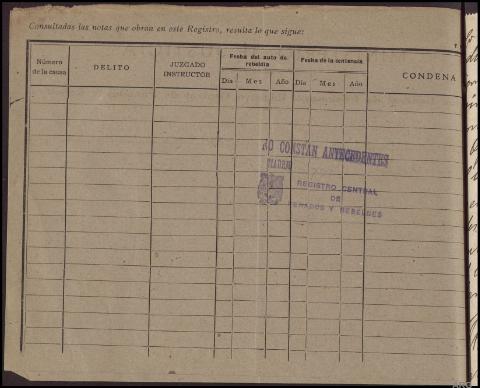 Consultadas las notas que obran en este Registro, resulta lo que sigue:
Número de la causa
DELITO
JUZGADO INSTRUCTOR
Fecha del auto de rebeldía
Día Mes Año
Fecha de la sentencia
Día Mes Año
CONDENA
NO CONSTAN ANTECEDENTES
MADRID
REGISTRO CENTRAL
DE
PENADOS Y REBELDES